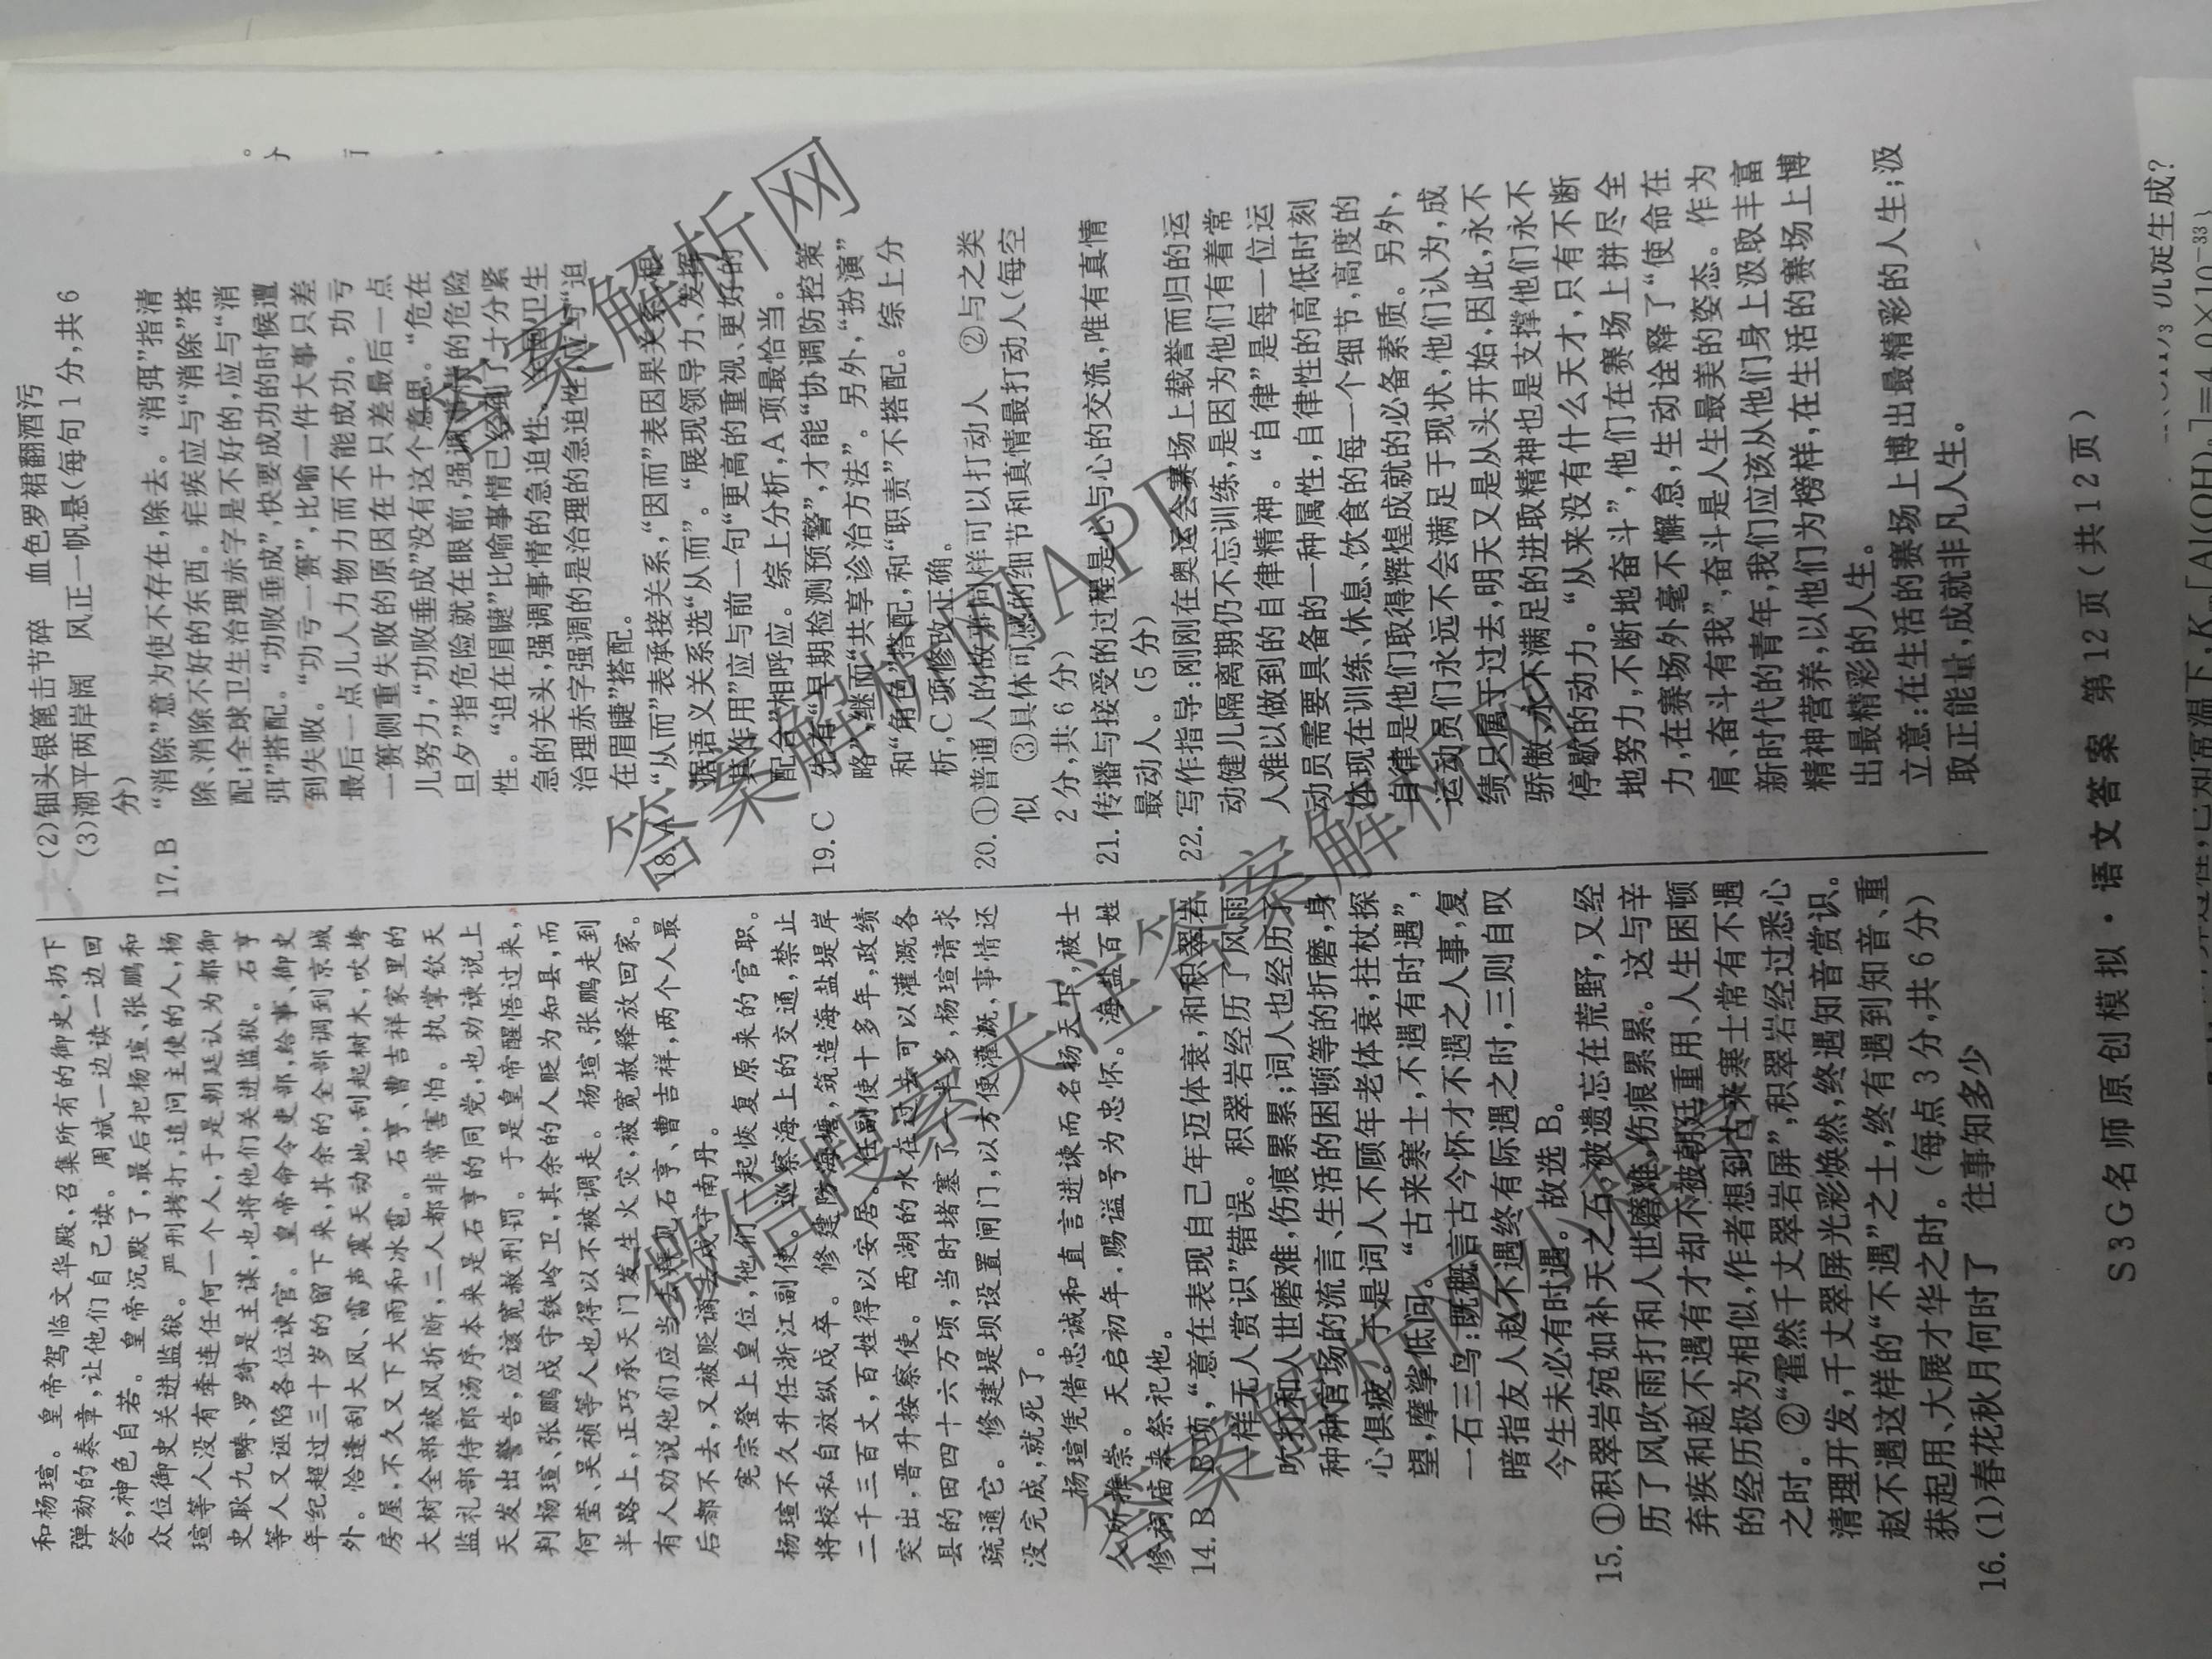 和杨瑄。皇帝驾临文华殿,召集所有的御史,扔下
弹劾的奏章,让他们自己读。周斌一边读一边回
答,神色自若。皇帝沉默了,最后把杨瑄、张鹏和
众位御史关进监狱。严刑拷打,追问主使的人,杨
瑄等人没有牵连任何一个人,于是朝廷认为都御
史耿九畴、罗绮是主谋,也将他们关进监狱。石亨
等人又诬陷各位谏官。皇帝命令吏部,给事、御史
年纪超过三十岁的留下来,其余的全部调到京城
外。恰逢刮大风、雷声震天动地,刮起树木,吹垮
房屋,不久又下大雨和冰雹。石亨、曹吉祥家里的
大树全部被风折断,二人都非常害怕。执掌钦天
监礼部侍郎汤序本来是石亨的同党,也劝谏说上
天发出警告,应该宽赦刑罚。于是皇帝醒悟过来,
判杨瑄、张鹏戍守铁岭卫,其余的人贬为知县,而
何莹、吴祯等人也得以不被调走。杨瑄、张鹏走到
半路上,正巧承天门发生火灾,被宽赦释放回家。
有人劝说他们应当去拜见石亨、曹吉祥,两个人最
后都不去,又被贬谪去戍守南丹。
宪宗登上皇位,他们一起恢复原来的官职。
杨瑄不久升任浙江副使。巡察海上的交通,禁止
将校私自放纵戍卒。修建防海塘,筑造海盐堤岸
二千三百丈,百姓得以安居。任副使十多年,政绩
突出,晋升按察使。西湖的水在过去可以灌溉各
县的田四十六万顷,当时堵塞了一半多,杨瑄请求
疏通它。修建堤坝设置闸门,以方便灌溉,事情还
没完成,就死了。
杨瑄凭借忠诚和直言进谏而名扬天下,被士
人所推崇。天启初年,赐谥号为忠怀。海盐百姓
修祠庙来祭祀他。
14. B B项,“意在表现自己年迈体衰,和积翠岩
一样无人赏识”错误。积翠岩经历了风雨
吹打和人世磨难,伤痕累累;词人也经历了
种种官场的流言、生活的困顿等的折磨,身
心俱疲。于是词人不顾年老体衰,拄杖探
望,摩挲低问。“古来寒士,不遇有时遇”,
一石三鸟:既慨言古今怀才不遇之人事,复
暗指友人赵不遇终有际遇之时,三则自叹
今生未必有时遇。故选B。
15. ①积翠岩宛如补天之石,被遗忘在荒野,又经
历了风吹雨打和人世磨难,伤痕累累。这与辛
弃疾和赵不遇有才却不被朝廷重用、人生困顿
的经历极为相似,作者想到古来寒士常有不遇
之时。②“霍然千丈翠岩屏”,积翠岩经过悉心
清理开发,千丈翠屏光彩焕然,终遇知音赏识。
赵不遇这样的“不遇”之士,终有遇到知音、重
获起用、大展才华之时。(每点3分,共6分)
16. (1)春花秋月何时了 往事知多少
(2)钿头银篦击节碎 血色罗裙翻酒污
(3)潮平两岸阔 风正一帆悬(每句1分,共6
分)
17. B “消除”意为使不存在,除去。“消弭”指清
除、消除不好的东西。疟疾应与“消除”搭
配;全球卫生治理赤字是不好的,应与“消
弭”搭配。“功败垂成”,快要成功的时候遭
到失败。“功亏一篑”,比喻一件大事只差
最后一点儿人力物力而不能成功。功亏
一篑侧重失败的原因在于只差最后一点
儿努力,“功败垂成”没有这个意思。“危在
旦夕”指危险就在眼前,强调事情的危险
性。“迫在眉睫”比喻事情已经到了十分紧
急的关头,强调事情的急迫性、全球卫生
治理赤字强调的是治理的急迫性,应与“迫
在眉睫”搭配。
18. A “从而”表承接关系,“因而”表因果关系,根
据语义关系选“从而”。“展现领导力、发挥
其作用”应与前一句“更高的重视、更好的
配合”相呼应。综上分析,A项最恰当。
19. C 先有“早期检测预警”,才能“协调防控策
略”,继而“共享诊治方法”。另外,“扮演”
和“角色”搭配,和“职责”不搭配。综上分
析,C项修改正确。
20. ①普通人的故事同样可以打动人 ②与之类
似 ③具体可感的细节和真情最打动人(每空
2分,共6分)
21. 传播与接受的过程是心与心的交流,唯有真情
最动人。(5分)
22. 写作指导:刚刚在奥运会赛场上载誉而归的运
动健儿隔离期仍不忘训练,是因为他们有着常
人难以做到的自律精神。“自律”是每一位运
动员需要具备的一种属性,自律性的高低时刻
体现在训练、休息、饮食的每一个细节,高度的
自律是他们取得辉煌成就的必备素质。另外,
运动员们永远不会满足于现状,他们认为,成
绩只属于过去,明天又是从头开始,因此,永不
骄傲,永不满足的进取精神也是支撑他们永不
停歇的动力。“从来没有什么天才,只有不断
地努力,不断地奋斗”,他们在赛场上拼尽全
力,在赛场外毫不懈怠,生动诠释了“使命在
肩、奋斗有我”,奋斗是人生最美的姿态。作为
新时代的青年,我们应该从他们身上汲取丰富
精神营养,以他们为榜样,在生活的赛场上博
出最精彩的人生。
立意:在生活的赛场上博出最精彩的人生;汲
取正能量,成就非凡人生。
S3G名师原创模拟·语文答案 第12页(共12页)